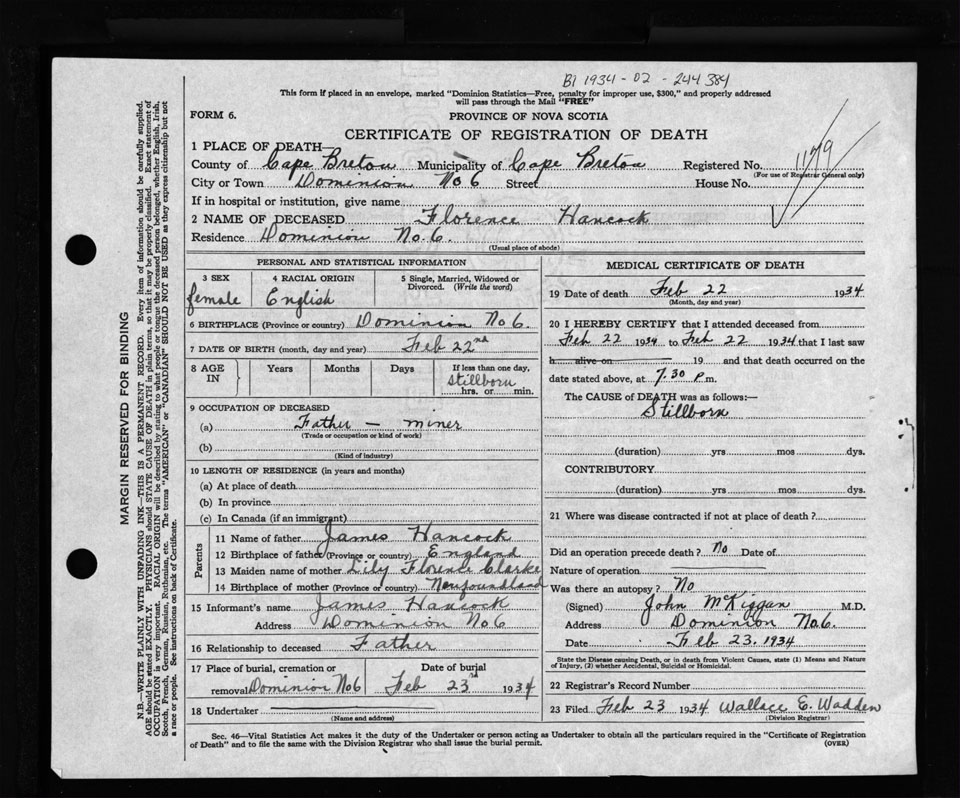 BI 1934-02-244384
This form if placed in an envelope, marked "Dominion Statistics—Free, penalty for improper use, $300," and properly addressed
will pass through the Mail "FREE"
FORM 6.
PROVINCE OF NOVA SCOTIA
CERTIFICATE OF REGISTRATION OF DEATH
1 PLACE OF DEATH—
County of Cape Breton Municipality of Cape Breton Registered No. 1179
(For use of Registrar General only)
City or Town Dominion No 6 Street House No.
If in hospital or institution, give name
2 NAME OF DECEASED Florence Hancock
Residence Dominion No. 6.
(Usual place of abode)
PERSONAL AND STATISTICAL INFORMATION
3 SEX 4 RACIAL ORIGIN 5 Single, Married, Widowed or
Divorced. (Write the word)
female English
6 BIRTHPLACE (Province or country) Dominion No 6.
7 DATE OF BIRTH (month, day and year) Feb 22nd
8 AGE IN Years Months Days If less than one day,
Stillborn
hrs. or min.
9 OCCUPATION OF DECEASED
(a) Father — miner
(Trade or occupation or kind of work)
(b)
(Kind of industry)
10 LENGTH OF RESIDENCE (in years and months)
(a) At place of death
(b) In province
(c) In Canada (if an immigrant)
Parents
11 Name of father James Hancock
12 Birthplace of father (Province or country) England
13 Maiden name of mother Lily Florence Clarke
14 Birthplace of mother (Province or country) Newfoundland
15 Informant's name James Hancock
Address Dominion No 6
16 Relationship to deceased Father
17 Place of burial, cremation or Date of burial
removal Dominion No 6 Feb 23rd 1934
18 Undertaker
(Name and address)
MEDICAL CERTIFICATE OF DEATH
19 Date of death Feb 22 1934
(Month, day and year)
20 I HEREBY CERTIFY that I attended deceased from
Feb 22 1934 to Feb 22 1934 that I last saw
h alive on 19 and that death occurred on the
date stated above, at 7.30 p.m.
The CAUSE of DEATH was as follows:—
Stillborn
(duration) yrs mos dys.
CONTRIBUTORY
(duration) yrs. mos. dys.
21 Where was disease contracted if not at place of death?
Did an operation precede death? No Date of
Nature of operation
Was there an autopsy? No
(Signed) John McKiggan M.D.
Address Dominion No. 6.
Date Feb 23, 1934
State the Disease causing Death, or in death from Violent Causes, state (1) Means and Nature
of Injury, (2) whether Accidental, Suicidal or Homicidal.
22 Registrar's Record Number
23 Filed Feb 23 1934 Wallace E. Wadden
(Division Registrar)
Sec. 46—Vital Statistics Act makes it the duty of the Undertaker or person acting as Undertaker to obtain all the particulars required in the "Certificate of Registration
of Death" and to file the same with the Division Registrar who shall issue the burial permit.
(OVER)
MARGIN RESERVED FOR BINDING
N.B.—WRITE PLAINLY WITH UNFADING INK—THIS IS A PERMANENT RECORD. Every item of information should be carefully supplied.
AGE should be stated EXACTLY. PHYSICIANS should STATE CAUSE OF DEATH in plain terms, so that it may be properly classified. Exact statement of
OCCUPATION is very important. RACIAL ORIGIN will be described by stating to what people or race the deceased person belonged, whether English, Irish,
Scotch, French, German, Russian, Ruthenian, etc. The terms "AMERICAN" or "CANADIAN" SHOULD NOT BE USED as they express citizenship but not
a race or people. See instructions on back of Certificate.